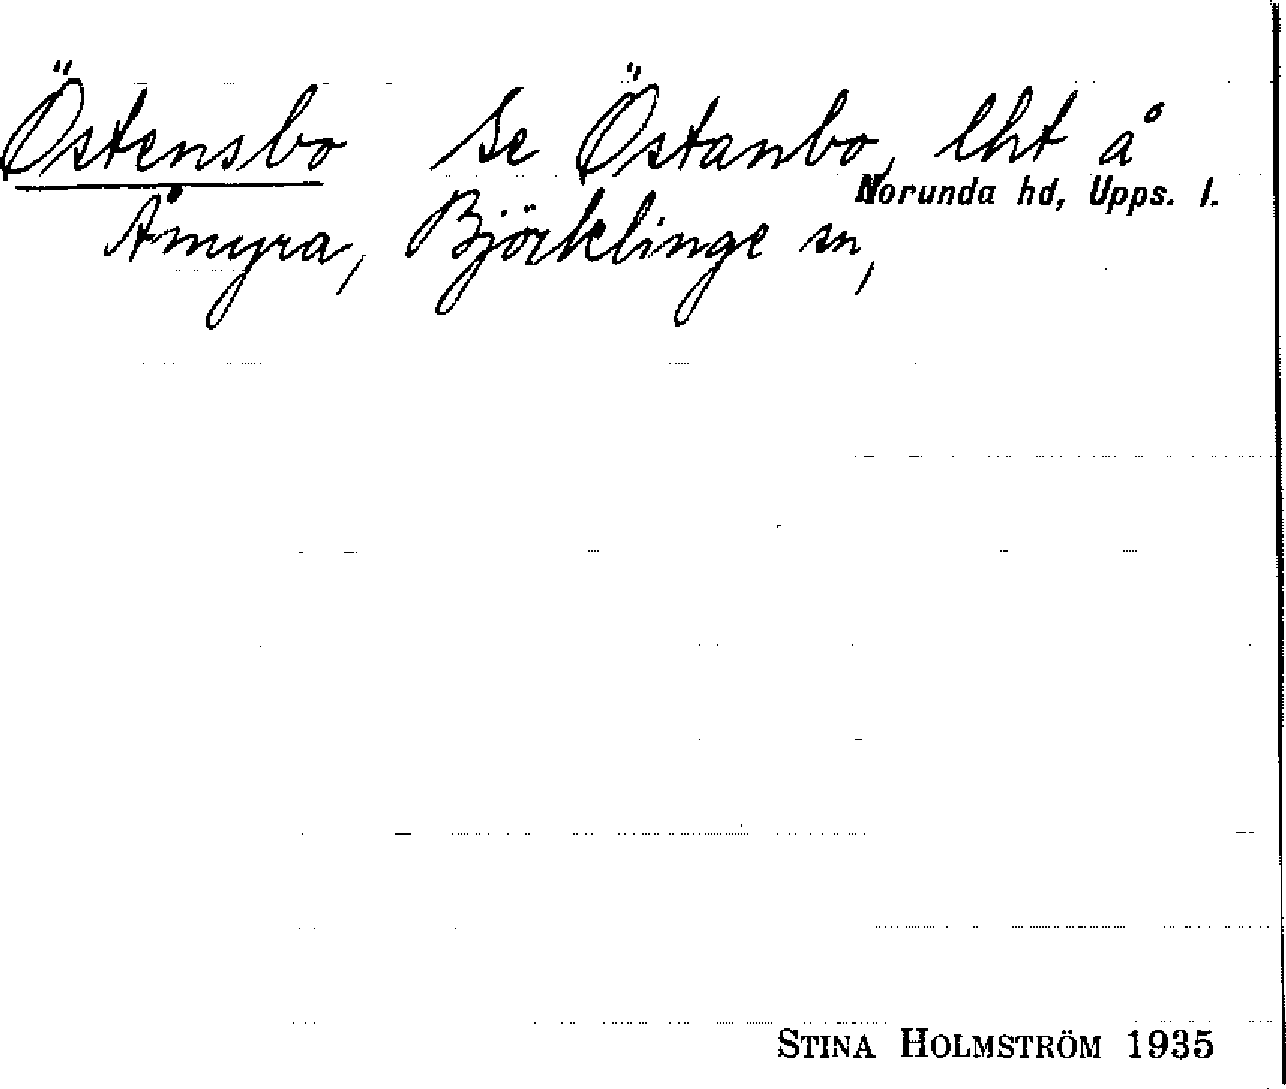 Östensbo se Östanbo, lht å
Norunda hd, Upps. l.
Åmyra, Björklinge sn,
STINA HOLMSTRÖM 1935